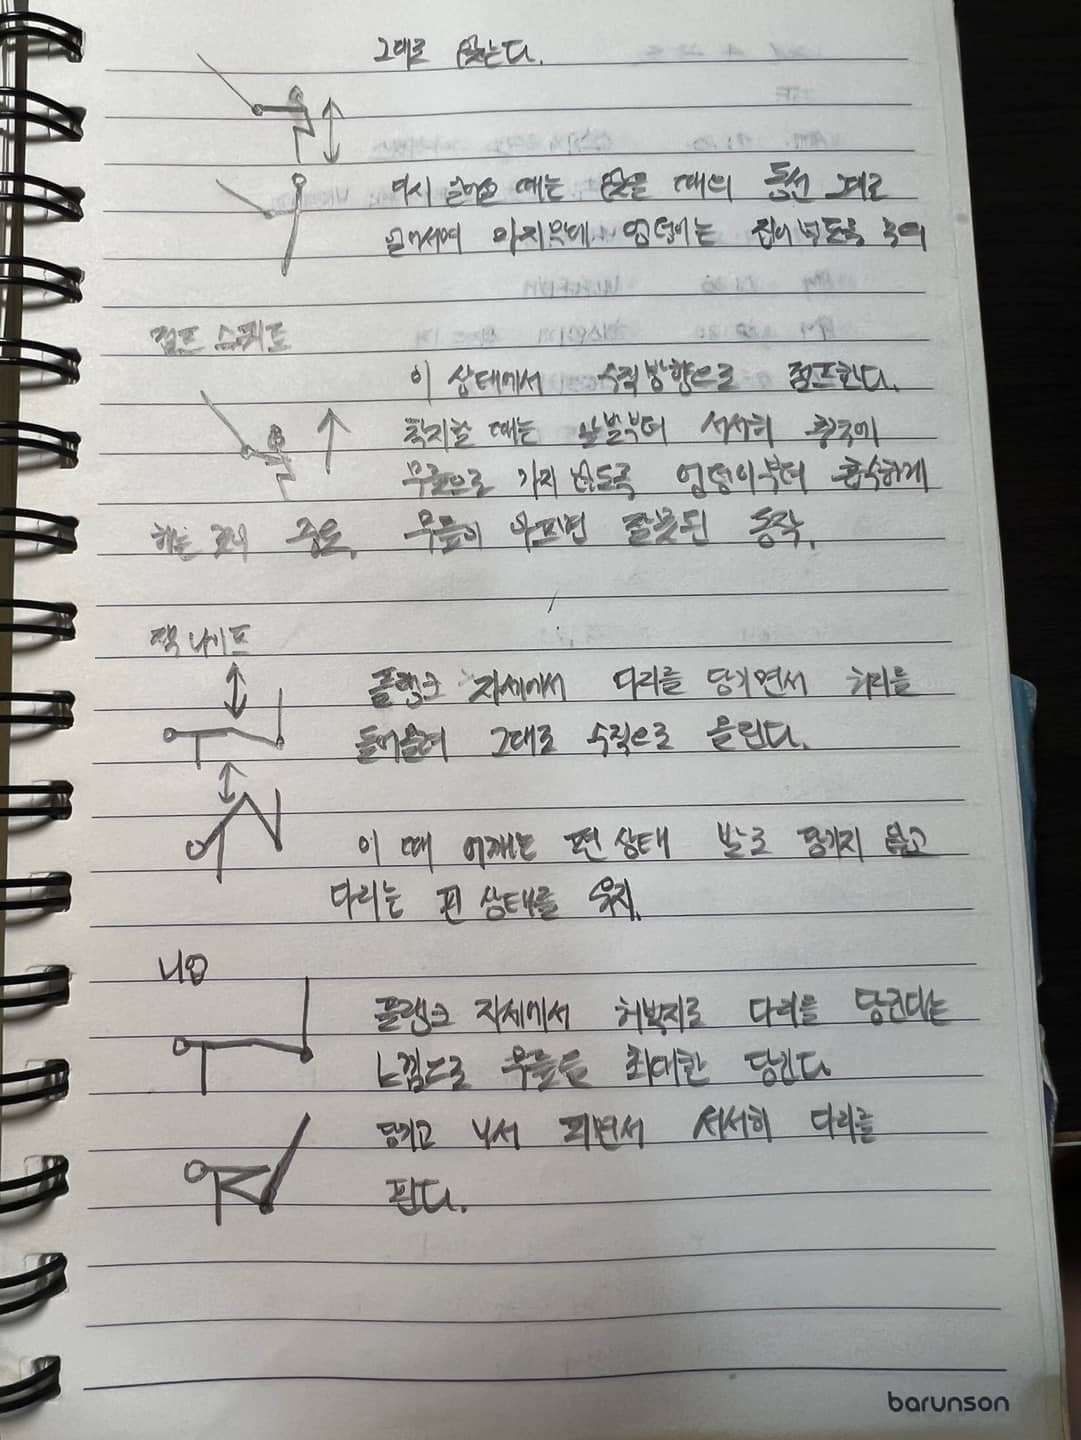 그대로 앉는다.
다시 일어설 때는 앉을 때의 동선 그대로
일어서며 마지막에 엉덩이는 집어넣도록 하며
점프 스쿼트
이 상태에서 수직방향으로 점프한다.
착지할 때는 앞발부터 서서히 충격이
무릎으로 가지 않도록 엉덩이부터 흡수하게
하는 것이 중요. 무릎이 아프면 잘못된 동작.
잭 나이프
플랭크 자세에서 다리를 당기면서 허리를
들어올려 그대로 수직으로 올린다.
이 때 어깨는 편 상태 발로 당기지 않고
다리는 핀 상태를 유지.
니업
플랭크 자세에서 허벅지로 다리를 당긴다는
느낌으로 무릎을 최대한 당긴다
당기고 나서 펴면서 서서히 다리를
핀다.
barunson